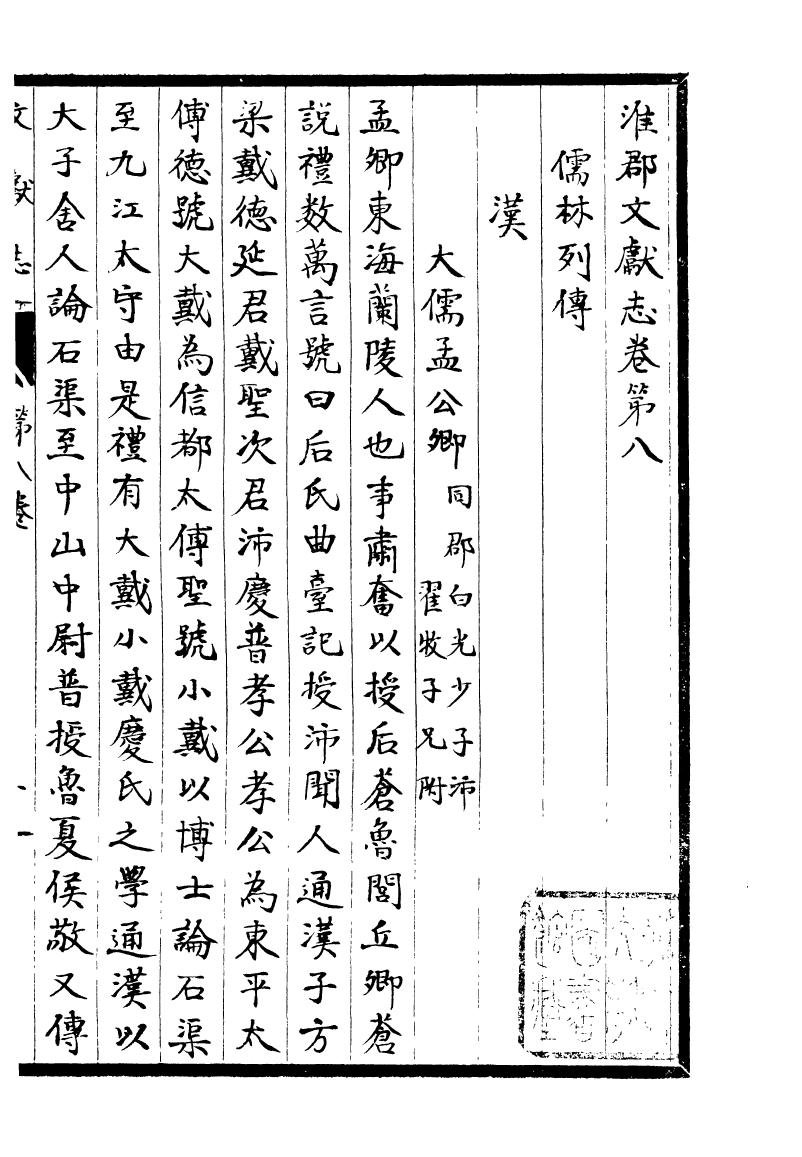 淮郡文獻志卷第八
儒林列傳
漢
大儒孟公卿同郡白光少子沛翟牧子兄附
孟卿東海蘭陵人也事肅奮以授后蒼魯閭丘卿蒼
說禮数萬言號曰后氏曲臺記授沛聞人通漢子方
梁戴德延君戴聖次君沛慶普孝公孝公為東平太
傅德號大戴為信都太傅聖號小戴以博士論石渠
至九江太守由是禮有大戴小戴慶氏之學通漢以
大子舍人論石渠至中山中尉普授魯夏侯敬又傳
文獻志
第八卷
一